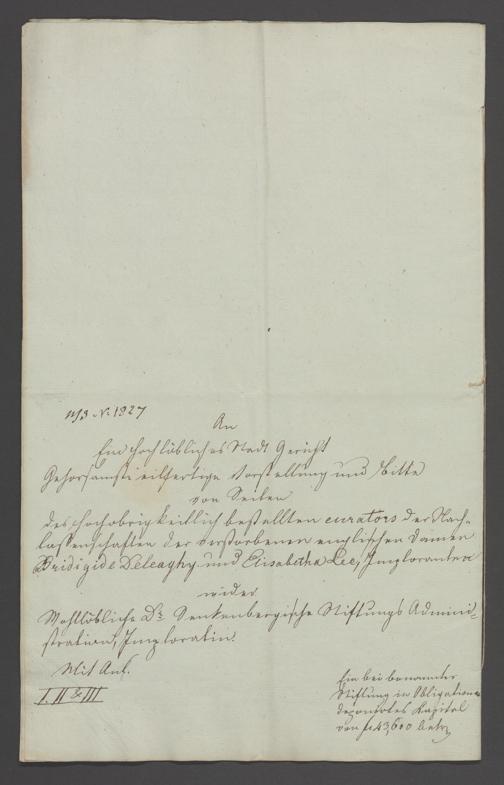 1827
An
Ein Hochlöbliches Stadt Gericht
Gehorsamst eilfertige Vorstellung und Bitte
von Seiten
des hochobrigkeitlich bestellten curators der Nach-
lassenschaften der verstorbenen englischen Damen
Bridigide Deleaghy und Elisabetha Lee, Imploranten
wider
Wohllöbliche Dr. Senkenbergische Stiftungs Admini-
stration, Imploratin.
Mit Anl.
I. II & III
Ein bei benannter
Stiftung in Obligationen
deponirtes Kapital
von fl 43,600